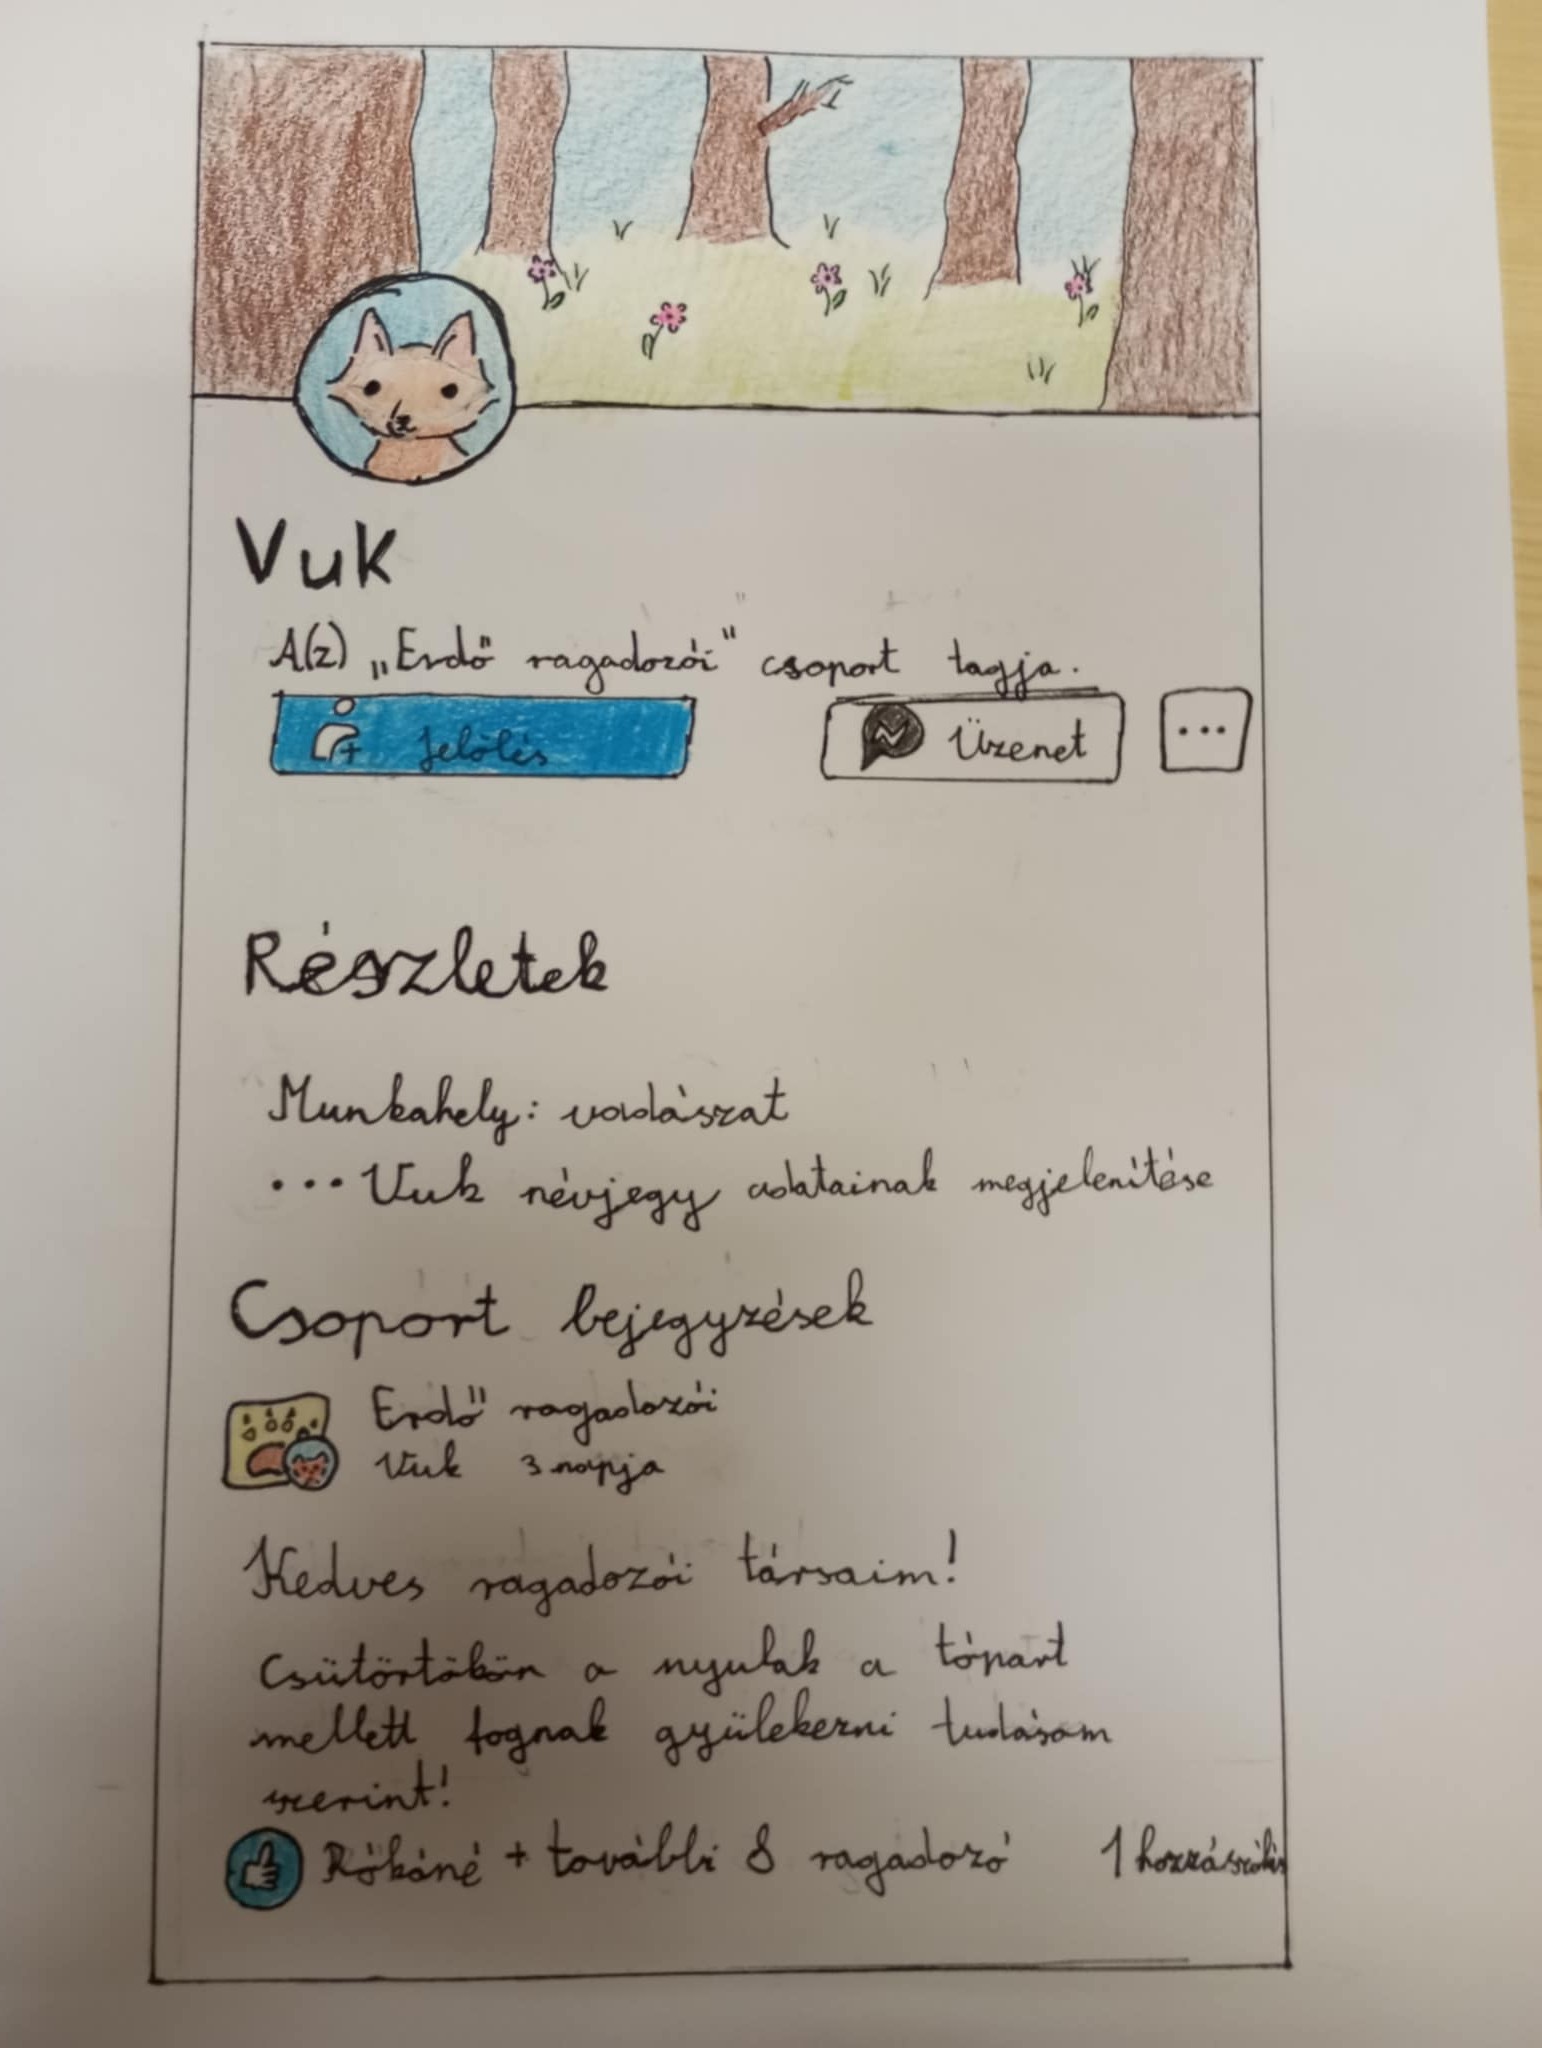 Vuk
A(z) „Erdő ragadozói" csoport tagja.
Jelölés
Üzenet
...
Részletek
Munkahely: vadászat
... Vuk névjegy adatainak megjelenítése
Csoport bejegyzések
Erdő ragadozói
Vuk 3 napja
Kedves ragadozói társaim!
Csütörtökön a nyulak a tópart
mellett fognak gyülekezni tudásom
szerint!
Rókáné + további 8 ragadozó 1 hozzászólás